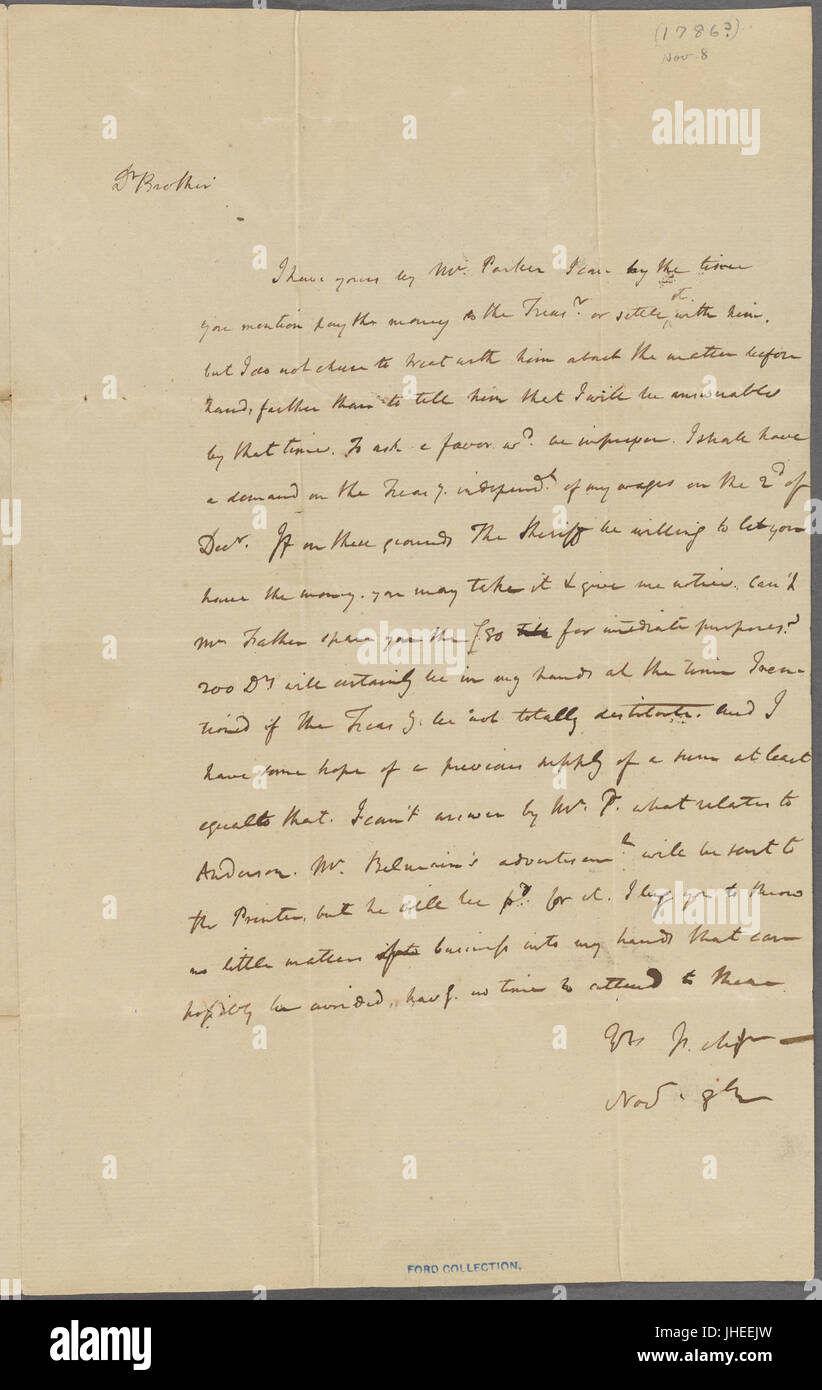 (1786?)
Nov 8
Dr Brother
I have yours by Mr. Parker I can by the time
you mention pay the money to the Treasr. or settle it with him,
but I do not chuse to treat with him about the matter before
hand, farther than to tell him that I will be answerable
by that time. To ask a favor wd. be improper. I shall have
a demand on the Treasy. independt. of my wages on the 2d of
Decr. If on these grounds The Sheriff be willing to let you
have the money. you may take it & give me notice. Can't
my Father spare you the £80 for imediate purposes?
200 Drs will certainly be in my hands at the time I men-
tioned if the Treasy. be not totally destitute. And I
have some hope of a previous supply of a sum at least
equal to that. I can't answer by Mr. P. what relates to
Anderson. Mr. Belmain's advertisemt. will be sent to
the Printer, but he will be pd. for it. I beg you to throw
no little matters business into my hands that can
possibly be avoided, havg. no time to attend to them
Yrs
Novr. 8th
FORD COLLECTION.
alamy
alamy
a
Image ID: JHEEJW
www.alamy.com